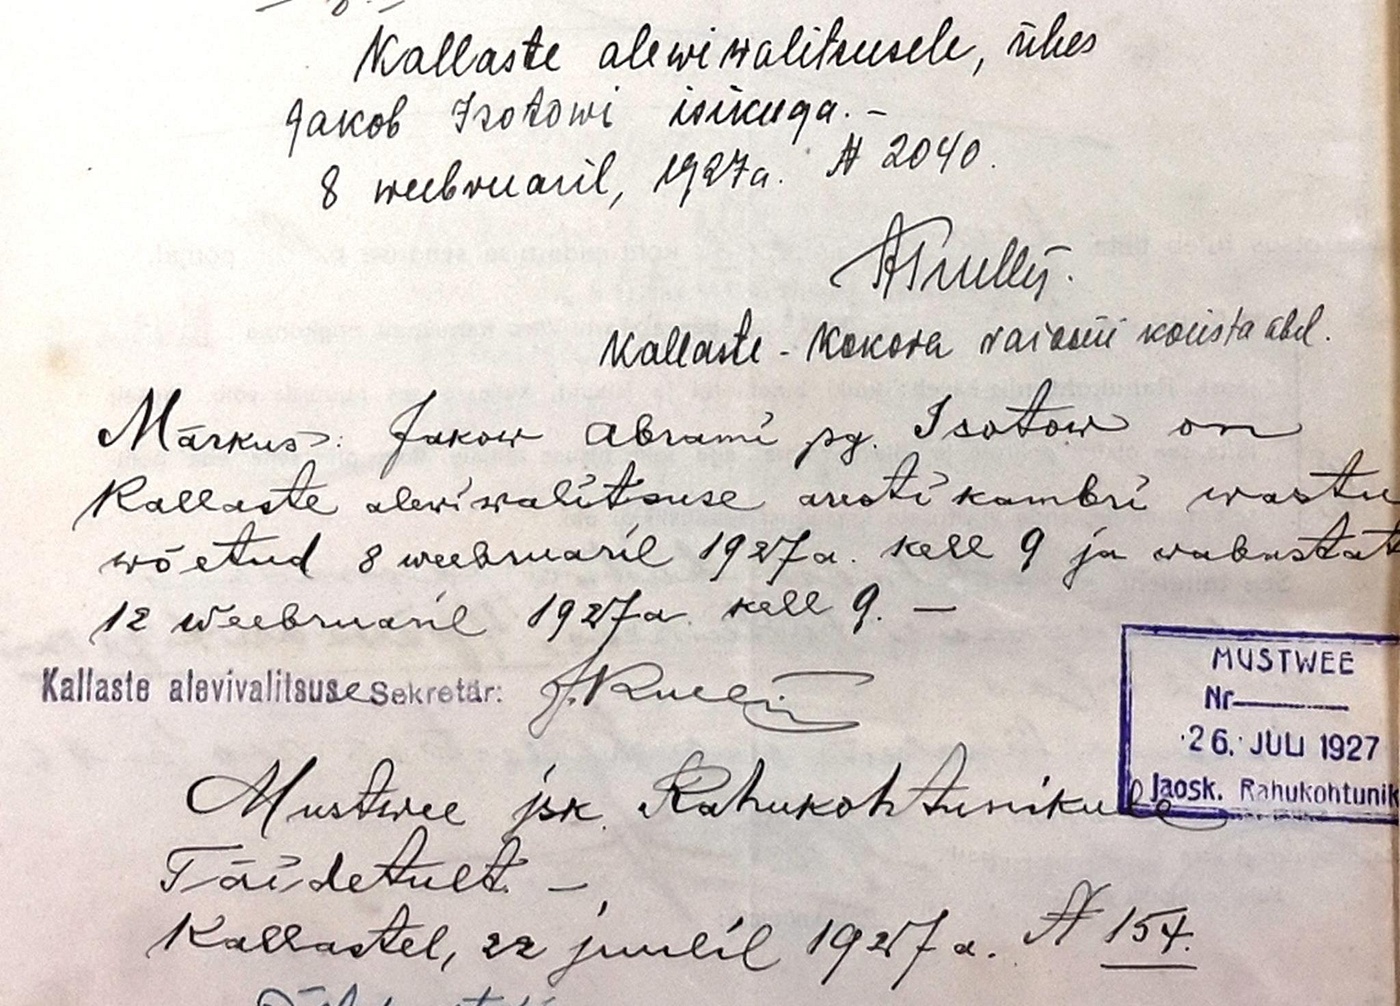 Kallaste alewiwalitsusele, ühes
Jakob Isotowi isikuga. –
8 weebruaril, 1927a. № 2040.
Kallaste - Kokora raiooni konstaabel.
Märkus: Jakow Abrami pg. Isotow on
Kallaste alewiwalitsuse aresti kambri wastu
wõetud 8 weebruaril 1927a. kell 9 ja wabastat
12 weebruaril 1927a. kell 9. –
Kallaste alevivalitsuse Sekretär:
MUSTWEE
Nr
26. JULI 1927
Jaosk. Rahukohtunik
Mustwee jsk. Rahukohtunikule
Täidetult. –
Kallastel, 22 juulil 1927a. № 154.